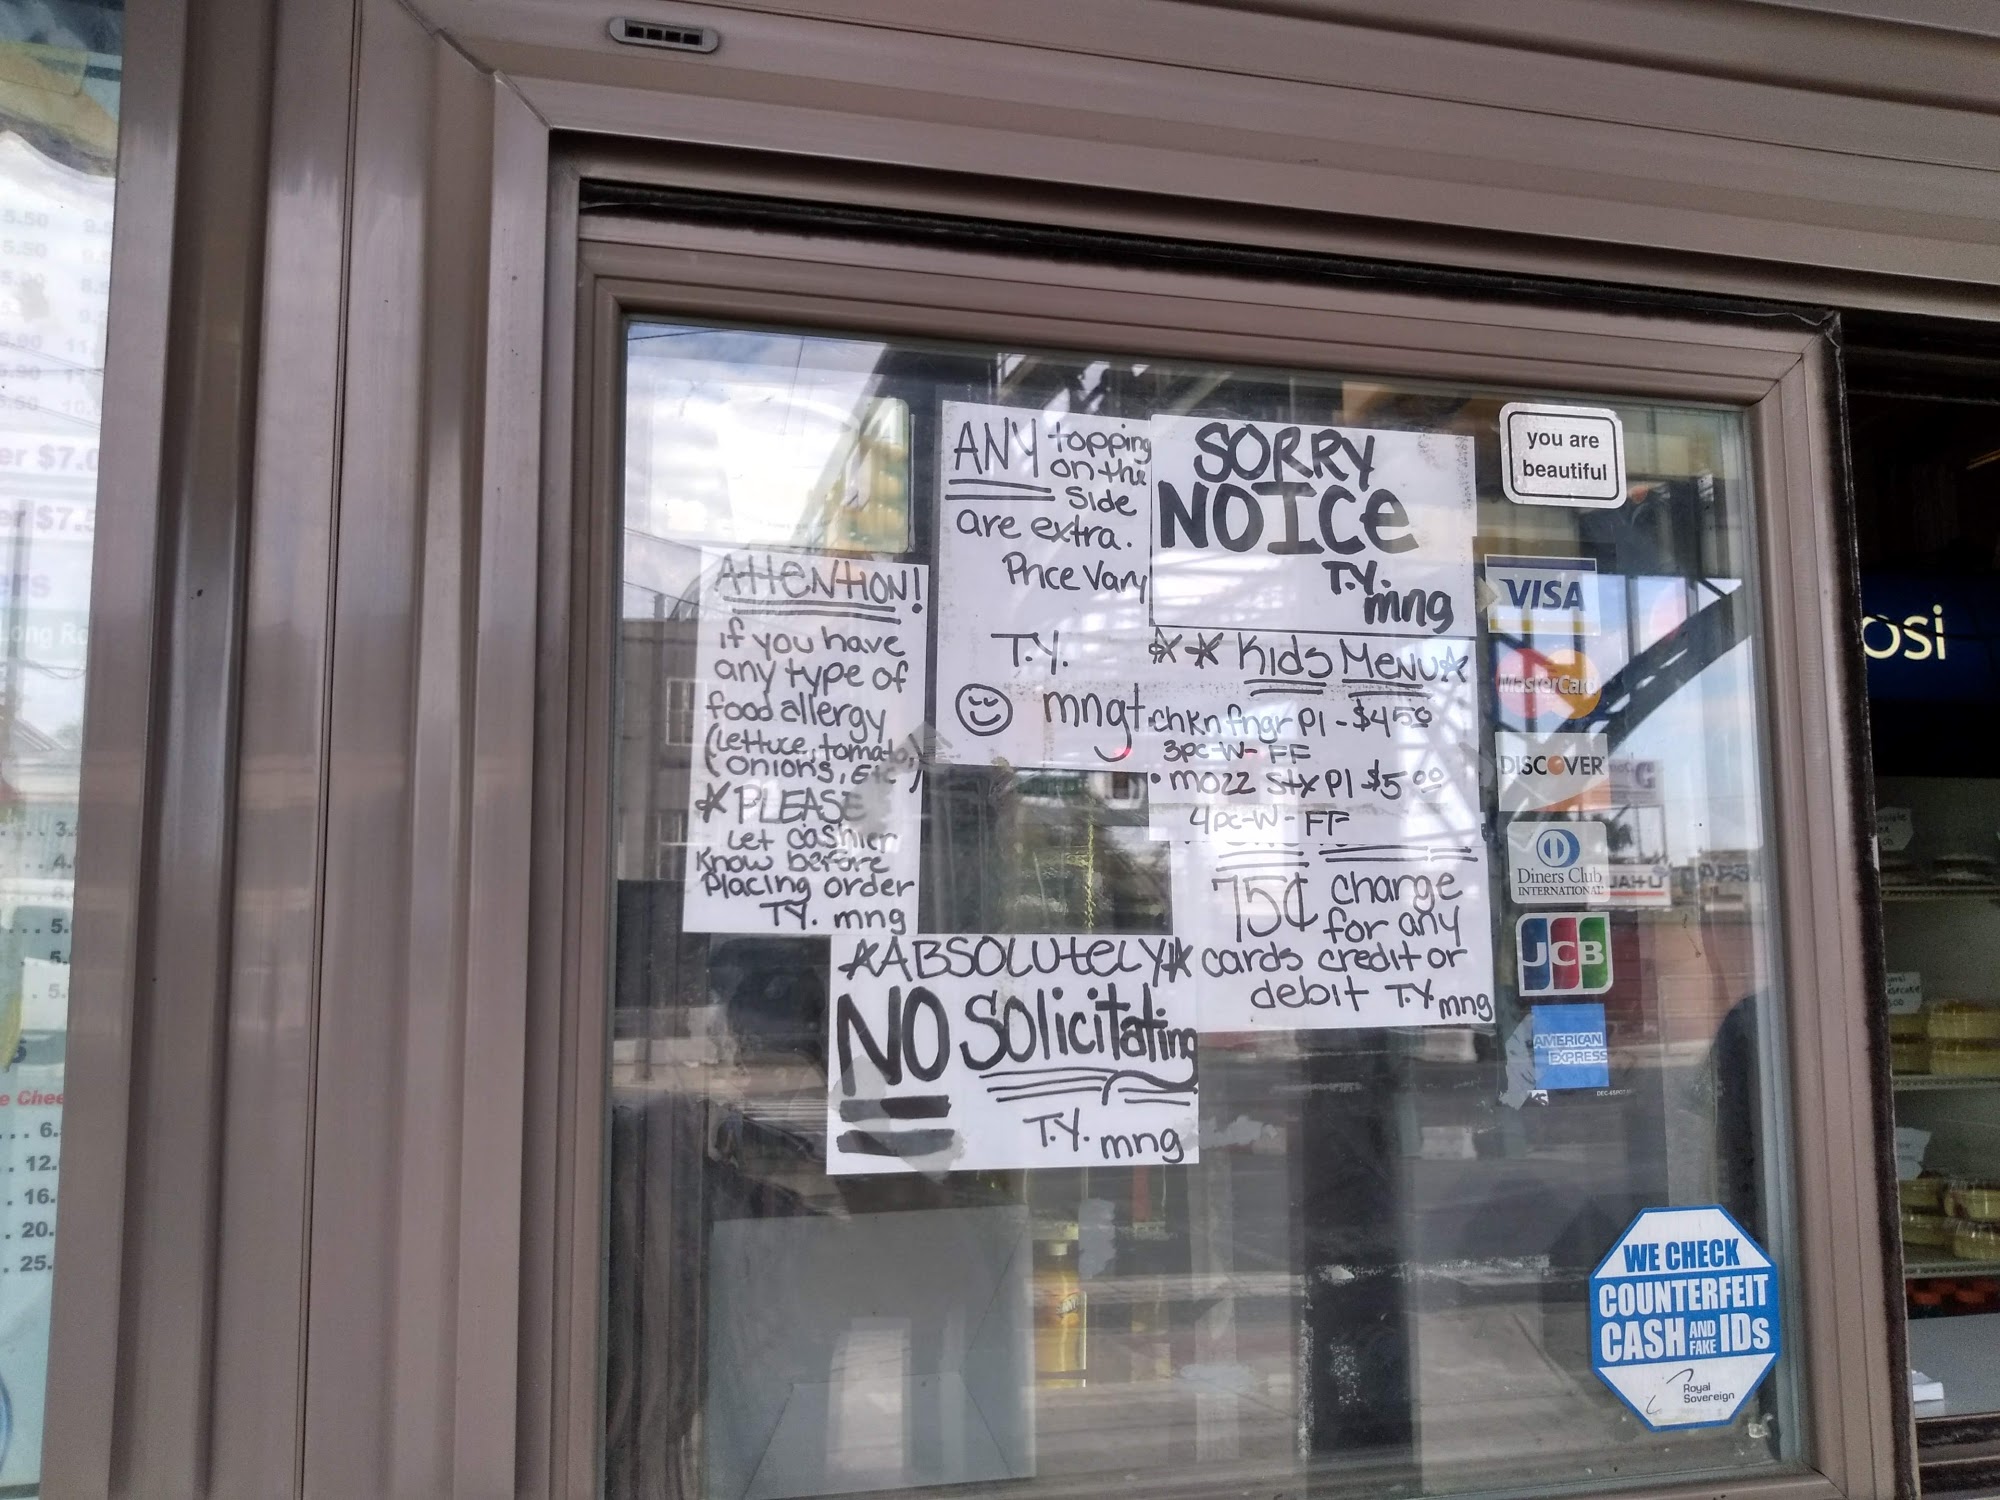 ATTENTION!
if you have
any type of
food allergy
(Lettuce, tomato,
onions, Etc)
* PLEASE
Let cashier
Know before
Placing order
T.Y. mng
ANY topping
on the
side
are extra.
Price Vary
T.Y.
mngt.
SORRY
NOICe
T.Y.
mng
** Kids Menu*
• chkn fngr Pl - $4.50
3pc-W-FF
• mozz stx Pl $5.00
4pc-W-FF
75¢ change
for any
cards credit or
debit T.Y. mng
*ABSOLUtELY*
NO Solicitating
T.Y. mng
you are
beautiful
VISA
MasterCard
DISCOVER
Diners Club
INTERNATIONAL
JCB
AMERICAN
EXPRESS
WE CHECK
COUNTERFEIT
CASH AND FAKE IDs
Royal
Sovereign
osi
5.50
5.50
er $7.0
er $7.5
ers
Long Ro
e Chee
6.
12.
16.
20.
25.